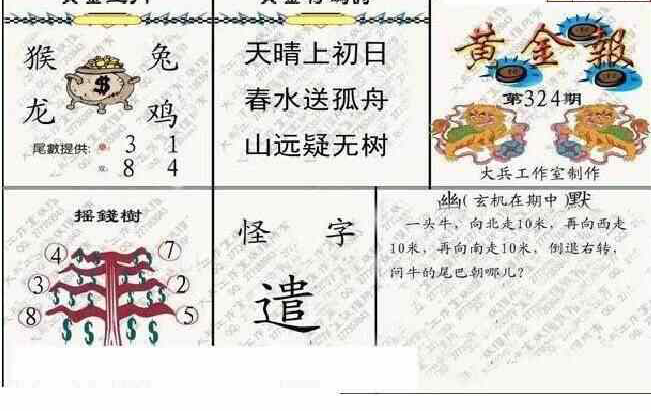 猴 兔
龙 鸡
尾數提供: 單: 3 1
双: 8 4
天晴上初日
春水送孤舟
山远疑无树
黄金報
第324期
火兵工作室制作
摇錢樹
4 7
3 2
8 5
怪 字
遣
幽(玄机在期中)默
一头牛，向北走10米，再向西走
10米，再向南走10米，倒退右转，
问牛的尾巴朝哪儿?